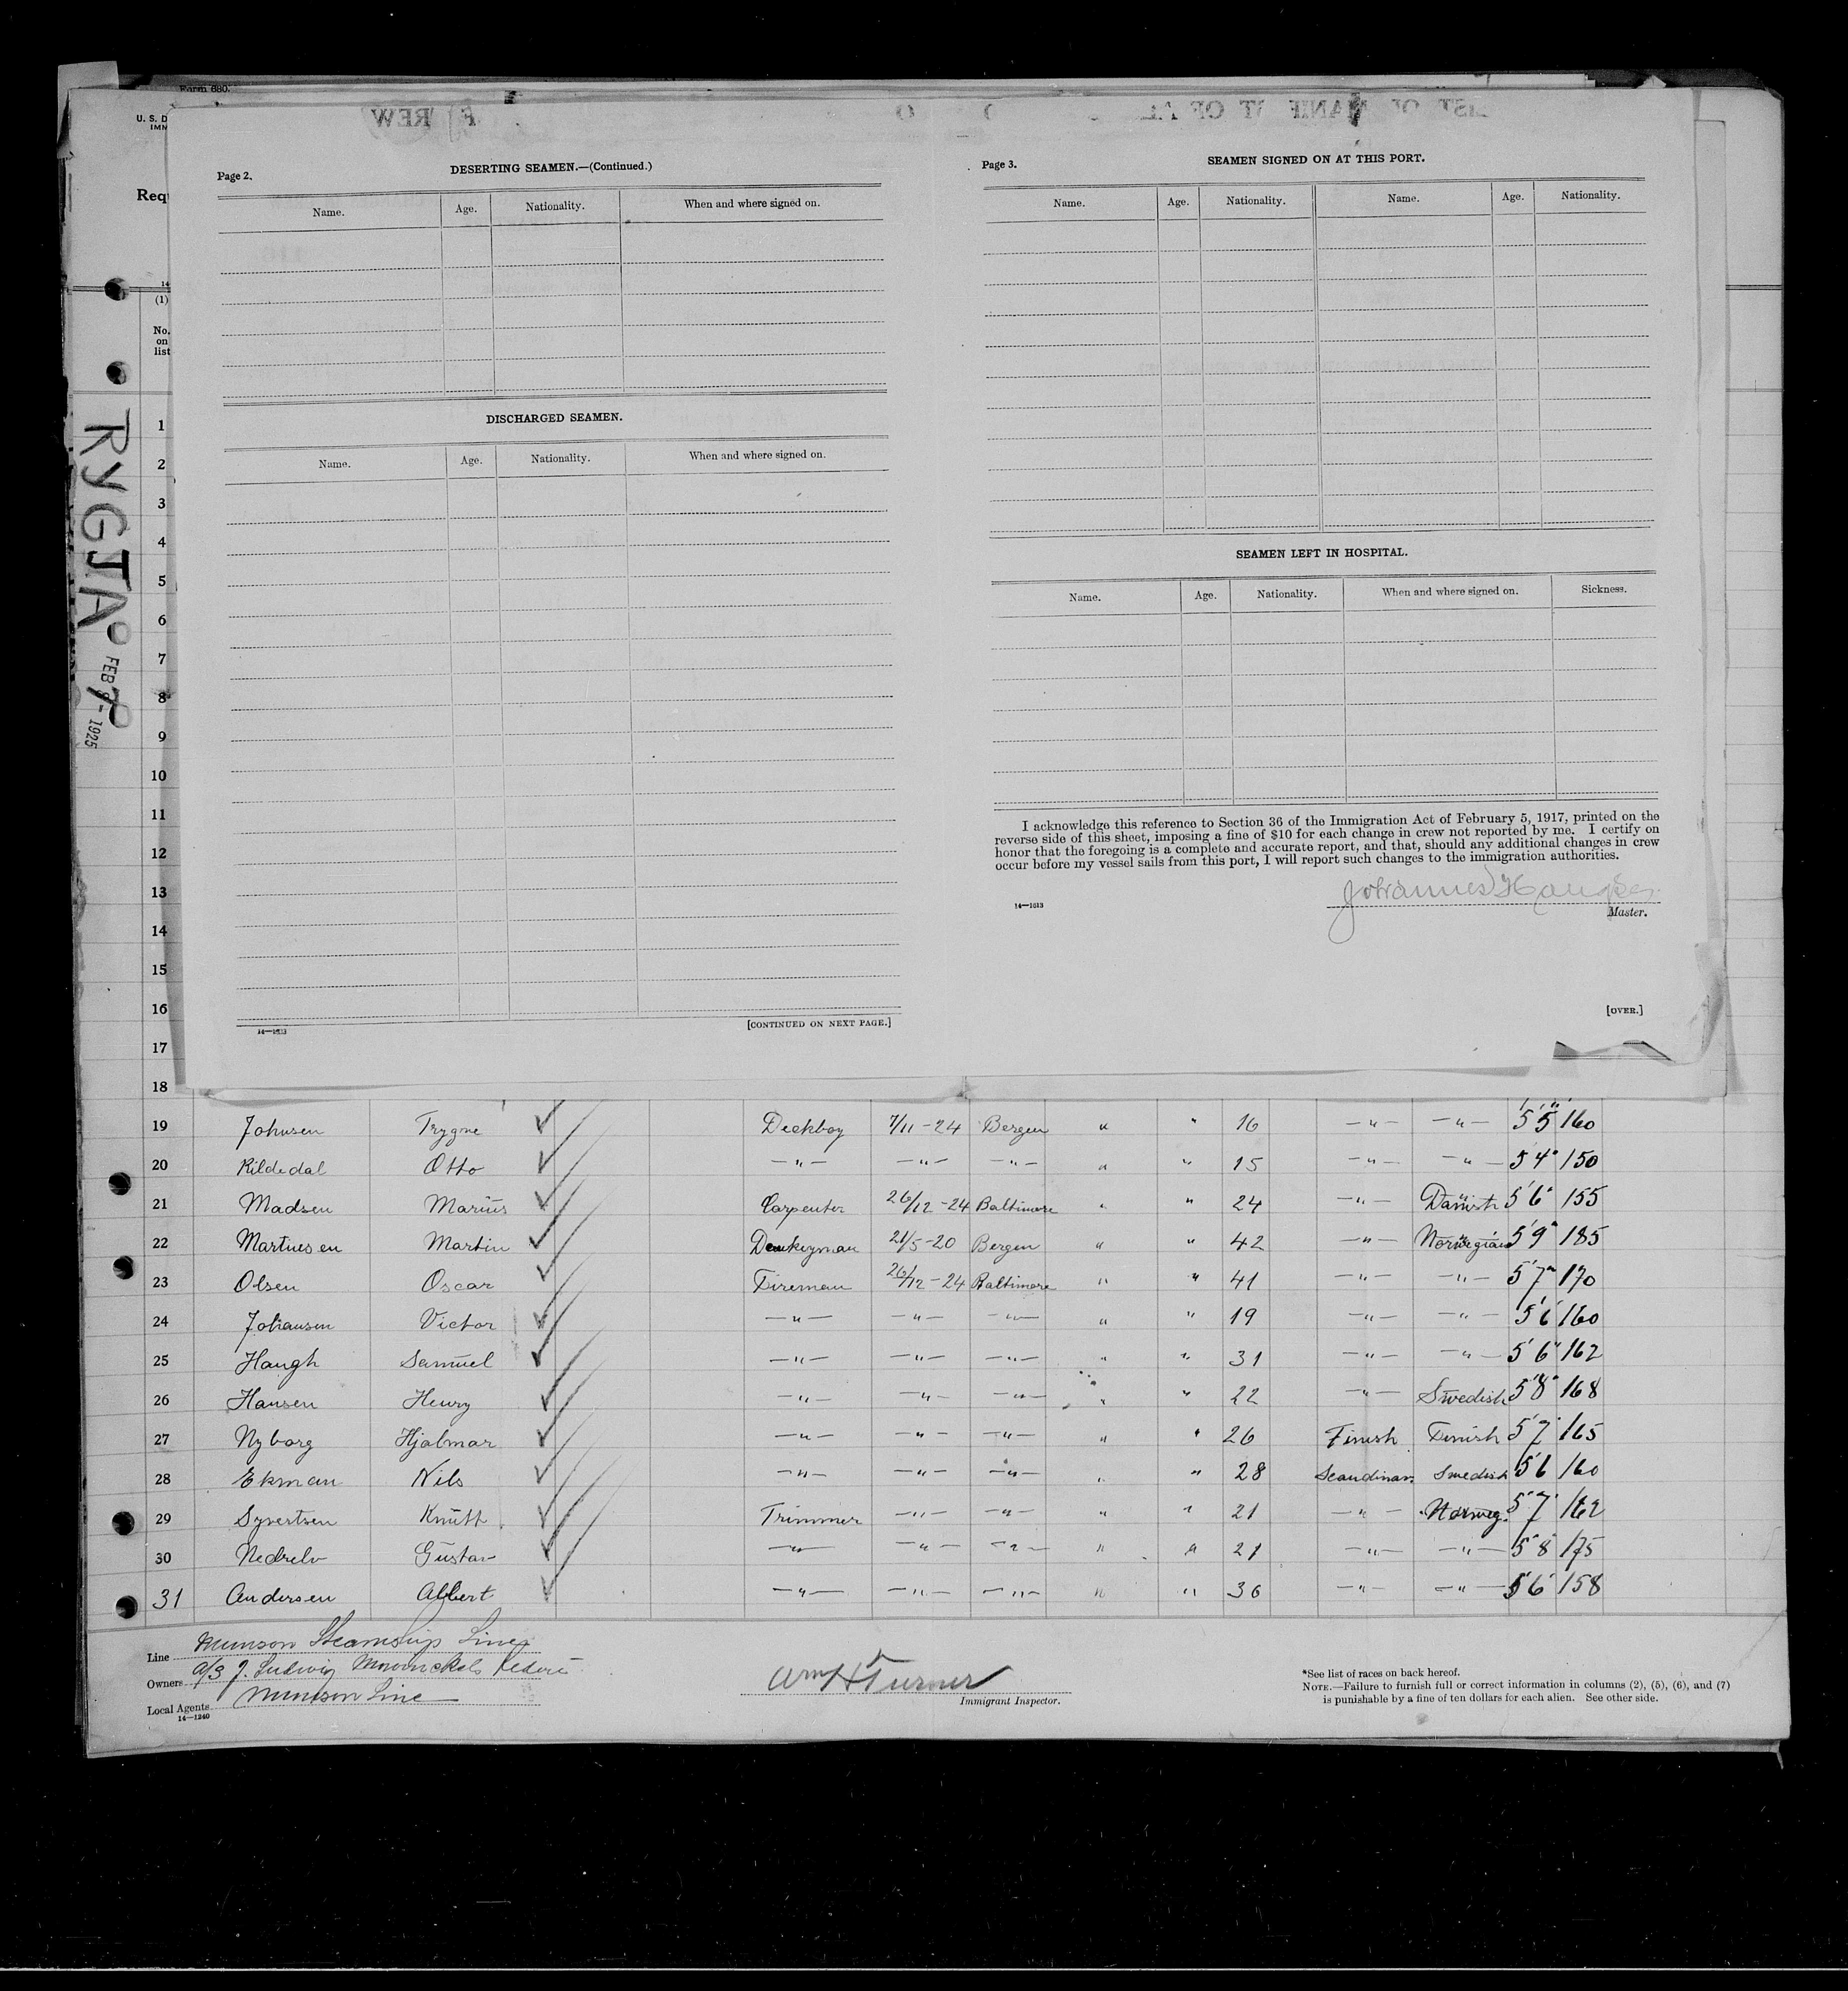 Form 680.
U. S. D
IMM
Req
14
(1)
No.
on
list
RYGJA
FEB - 1925
Page 2.
DESERTING SEAMEN.—(Continued.)
Name. Age. Nationality. When and where signed on.
DISCHARGED SEAMEN.
Name. Age. Nationality. When and where signed on.
14—1613
[CONTINUED ON NEXT PAGE.]
Page 3.
SEAMEN SIGNED ON AT THIS PORT.
Name. Age. Nationality. Name. Age. Nationality.
SEAMEN LEFT IN HOSPITAL.
Name. Age. Nationality. When and where signed on. Sickness.
I acknowledge this reference to Section 36 of the Immigration Act of February 5, 1917, printed on the
reverse side of this sheet, imposing a fine of $10 for each change in crew not reported by me. I certify on
honor that the foregoing is a complete and accurate report, and that, should any additional changes in crew
occur before my vessel sails from this port, I will report such changes to the immigration authorities.
Johannes
Master.
14—1613
[OVER.]
1
2
3
4
5
6
7
8
9
10
11
12
13
14
15
16
17
18
19 Johnsen Trygve Deckboy 7/11-24 Bergen " " 16 —"— —"— 5'5" 160
20 Kildedal Otto —"— —"— —"— " " 15 —"— —"— 5'4" 150
21 Madsen Marius Carpenter 26/12-24 Baltimore " " 24 —"— Danish 5'6" 155
22 Martinsen Martin Donkeyman 21/5-20 Bergen " " 42 —"— Norwegian 5'9" 185
23 Olsen Oscar Fireman 26/12-24 Baltimore " " 41 —"— —"— 5'7" 170
24 Johansen Victor —"— —"— —"— " " 19 —"— —"— 5'6 160
25 Haugh Samuel —"— —"— —"— " " 31 —"— —"— 5'6" 162
26 Hansen Henry —"— —"— —"— " " 22 —"— Swedish 5'8" 168
27 Nyborg Hjalmar —"— —"— —"— " " 26 Finish Finish 5'7" 165
28 Ekman Nils —"— —"— —"— " " 28 Scandinav. Swedish 5'6 160
29 Syvertsen Knutt Trimmer —"— —"— " " 21 —"— Norweg. 5'7" 162
30 Nedrelv Gustav —"— —"— —"— " " 21 —"— —"— 5'8 175
31 Andersen Albert —"— —"— —"— " " 36 —"— —"— 5'6" 158
Line Munson Steamship Line
Owners A/S J. Ludwig Mowinckels Rederi
Local Agents Munson Line
14—1240
Wm H Turner
Immigrant Inspector.
*See list of races on back hereof.
NOTE.—Failure to furnish full or correct information in columns (2), (5), (6), and (7)
is punishable by a fine of ten dollars for each alien. See other side.